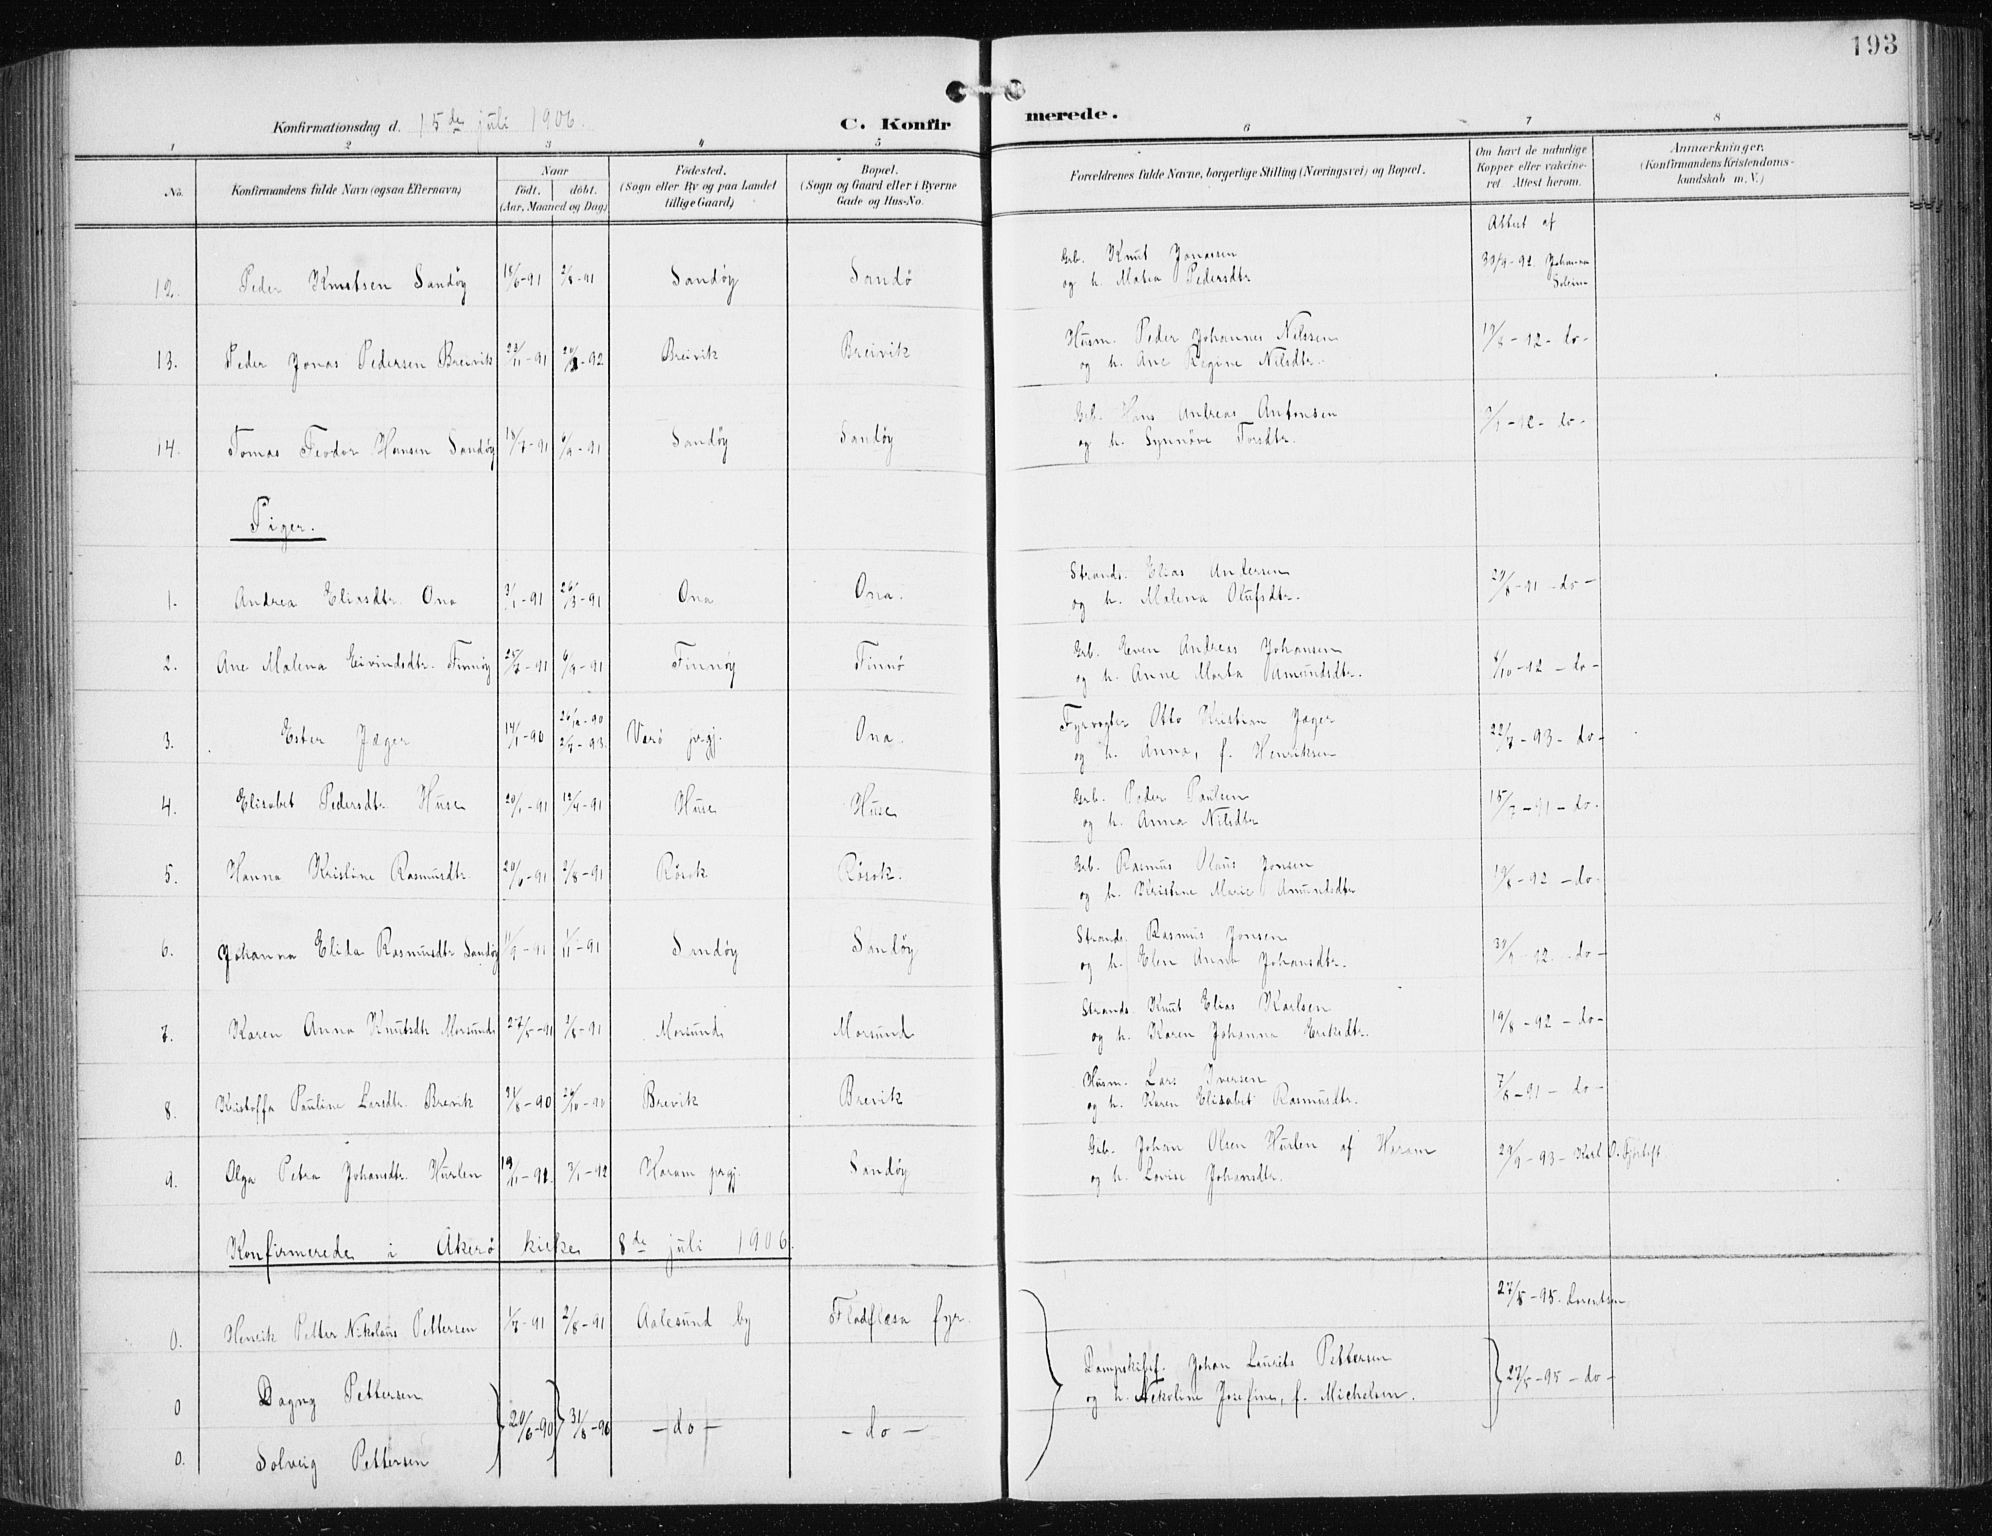 193
Konfirmationsdag d. 15de juli 1906.
C. Konfir merede.
1 2 3 4 5 6 7 8
No. Konfirmandens fulde Navn (ogsaa Efternavn) Naar født. døbt. (Aar, Maaned og Dag)
Fødested. (Sogn eller By og paa Landet tillige Gaard)
Bopæl. (Sogn og Gaard eller i Byerne Gade og Hus-No.
Forældrenes fulde Navne, borgerlige Stilling (Næringsvei) og Bopæl.
Om havt de naturlige Kopper eller vakcineret Attest herom.
Anmærkninger. (Konfirmandens Kristendomskundskab m. V.)
Attest af
12. Peder Knutsen Sandøy 18/6-91 2/8-91 Sandøy Sandø Grb. Knut Jonassen
og h. Pedersdtr 30/9-92. Johannes
13. Peder Jonas Pedersen Breivik 22/11-91 Breivik Breivik Husm. Peder Johannes Nilssen
og h. Ane Regine Nilsdtr. 19/8-92- do-
14. Tomas Teodor Hansen Sandøy Sandøy Sandøy Grb. Hans Andreas Antonsen
og h. Synnøve Torsdtr. -92- do-
Piger.
1. Andrea Eliasdtr. Ona 3/1-91 26/3-91 Ona Ona. Strands. Elias Andersen
og h. Malena Olufsdtr. 29/8-91 -do-
2. Ane Malena Eivindsdtr. Finnøy 6/9-91 Finnøy Finnø Grb. Even Andreas Johansen
og h. Anne Marta Amundsdtr. 4/10-92 -do-
3. Ester Jæger 14/1-90 Værø prgj. Ona. Fyrvogter Otto Kristian Jæger
og h. Anna, f. Henriksen 22/7-93- do-
4. Elisabet Pedersdtr. Huse 20/1-91 12/4-91 Huse Huse Grb. Peder Paulsen
og h. Anna Nilsdtr 15/7-91 -do-
5. Hanna Kristine Rasmusdtr. 20/6-91 2/8-91 Røsok Røsok. Grb. Rasmus Olaus Jonsen
og h. Kristine Marie Amundsdtr 19/8-92 -do-
6. Johanna Elida Rasmusdtr Sandøy 11/9-91 1/11-91 Sandøy Sandøy Strands. Rasmus Jonsen
og h. Elen Anna Johansdtr. 30/9-92. do-
7. Karen Anna Knutsdtr Morsund 27/5-91 2/8-91 Morsund Morsund Strands. Knut Elias Karlsen
og h. Karen Johanna Eriksdtr. 19/8-92 -do-
8. Kristoffa Pauline Larsdtr. Brevik 31/8-90 26/10-90 Brevik Brevik Husm. Lars Iversen
og h. Karen Elisabet Rasmusdtr. 7/8-91- do-
9. Olga Petra Johansdtr. Hurlen 19/11-91. 3/1-92 Haram prgj. Sandøy Grb. Johan Olsen Hurlen af Haram
og h. Lovise Johansdtr. 29/9-93- Karl O. Fjørtoft
Konfirmerede i Akerø kirke 8de juli 1906.
0. Henrik Petter Nikolaus Pettersen 1/7-91 2/8-91 Aalesund by Flodflæsa fyr. 27/5-95. Lorentsen
0 Dagny Pettersen
0. Solveig Pettersen 20/6-90 31/8-90 -do- -do- Dampskibsf. Johan Laurits Pettersen
og h. Nikoline Josefine, f. Michelsen. 27/5-95 -do-